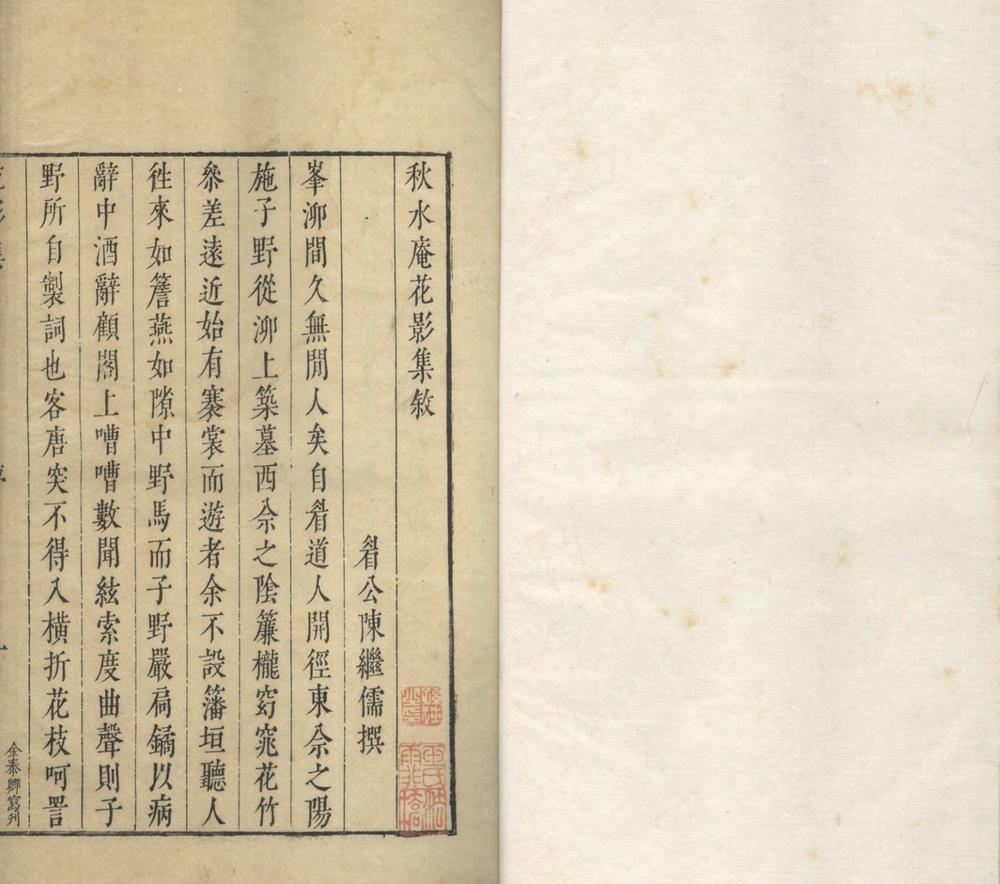 秋水庵花影集敘
眉公陳繼儒撰
峯泖間久無閒人矣自眉道人開徑東佘之陽
施子野從泖上築墓西佘之陰簾櫳窈窕花竹
叅差遠近始有褰裳而遊者余不設藩垣聽人
徃來如簷燕如隙中野馬而子野嚴扃鐍以病
辭中酒辭顧閣上嘈嘈數聞絃索度曲聲則子
野所自製詞也客唐突不得入橫折花枝呵詈
金泰卿寫刋